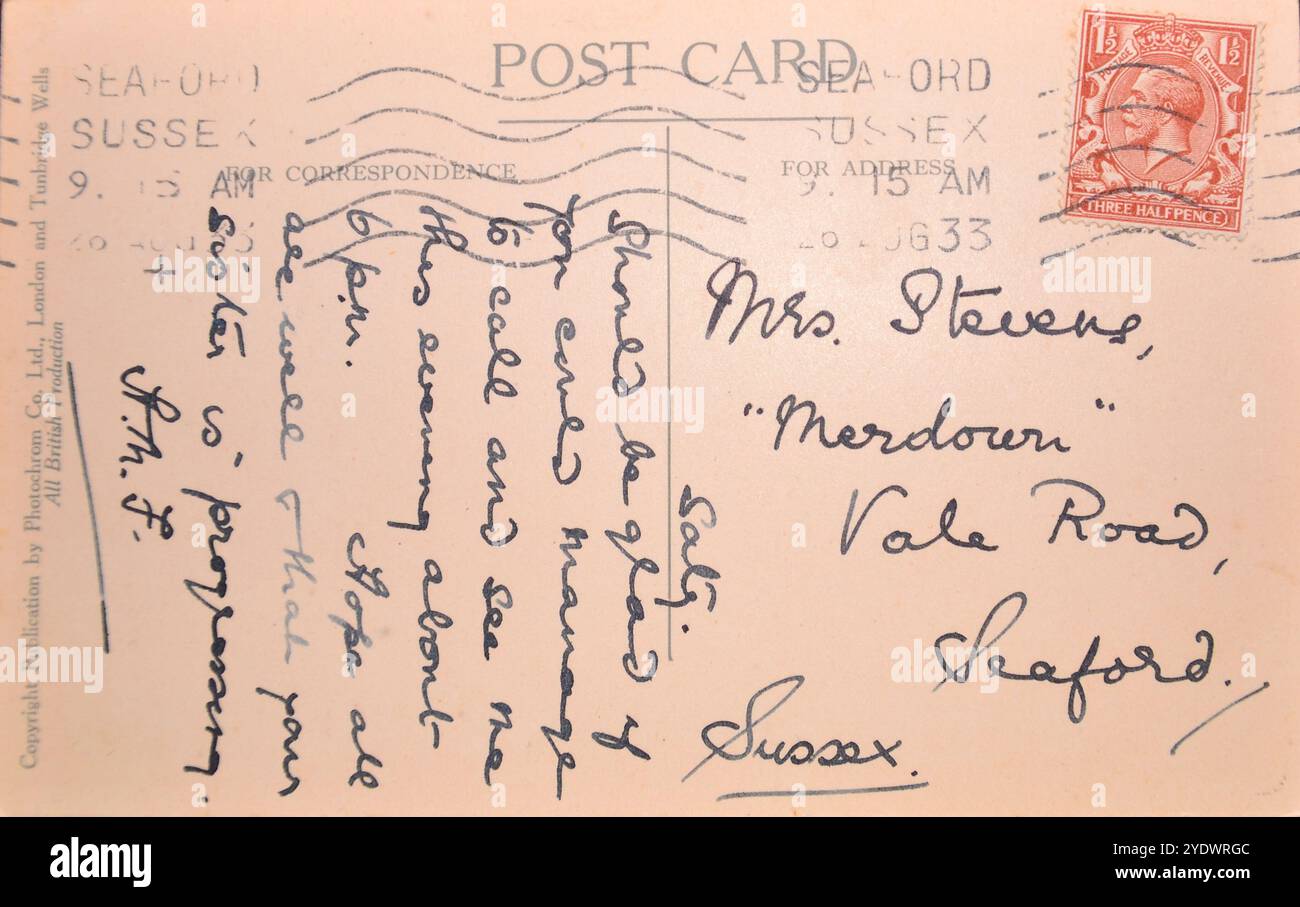 POST CARD
FOR CORRESPONDENCE
FOR ADDRESS
SEAFORD
SUSSEX
9. 15 AM
SEAFORD
SUSSEX
9. 15 AM
26 AUG 33
1½ 1½
POSTAGE REVENUE
THREE HALFPENCE
Saty.
Should be glad if
you could manage
to call and see me
this evening about
6 p.m. Hope all
are well & that your
sister is progressing.
A.M.F.
Mrs. Stevens,
"Merdown"
Vale Road,
Seaford.
Sussex.
Copyright Publication by Photochrom Co. Ltd., London and Tunbridge Wells
All British Production
alamy
alamy
Image ID: 2YDWRGC
www.alamy.com